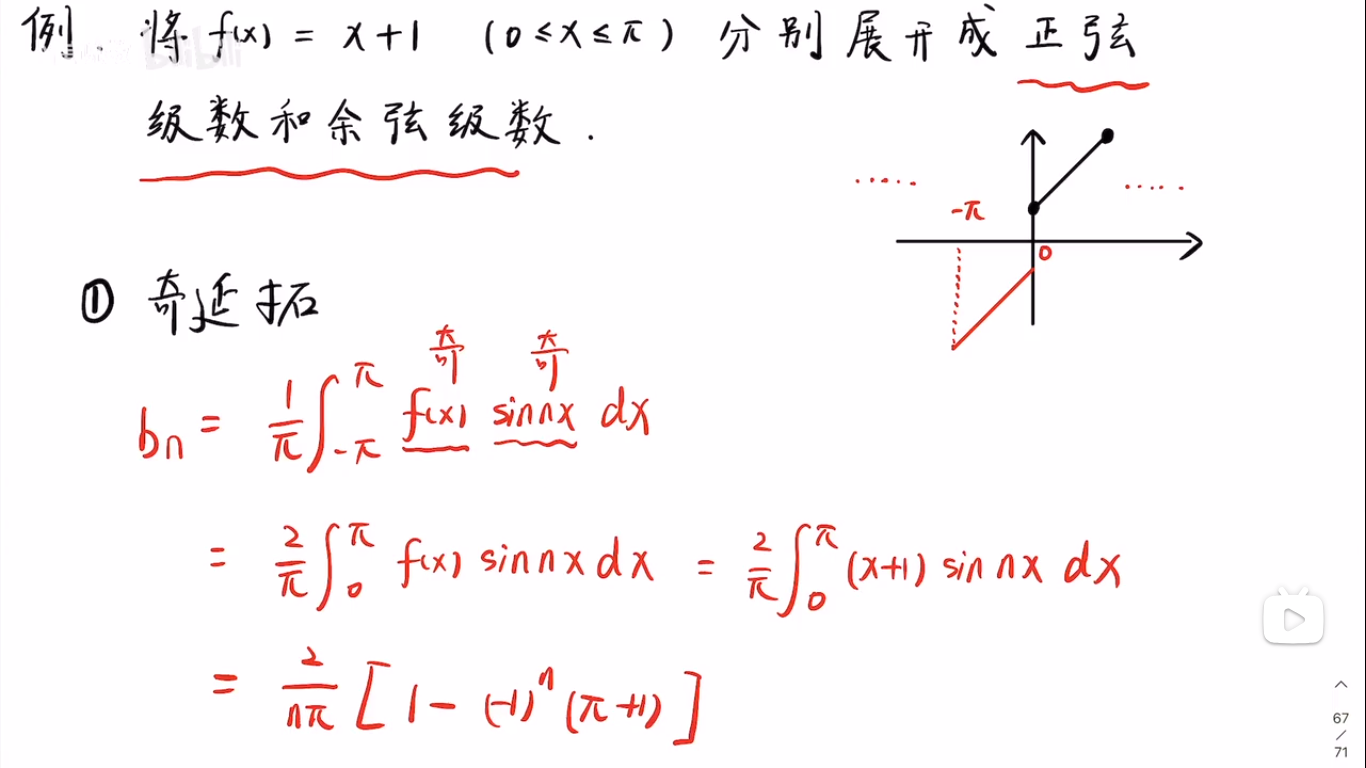 例. 将 f(x) = x+1 (0≤x≤π) 分别展开成正弦
级数和余弦级数.
-π
0
① 奇延拓
奇 奇
bn = 1/π ∫_{-π}^{π} f(x) sinnx dx
= 2/π ∫_0^π f(x) sinnx dx = 2/π ∫_0^π (x+1) sin nx dx
= 2/nπ [1-(-1)^n (π+1)]
67
/
71